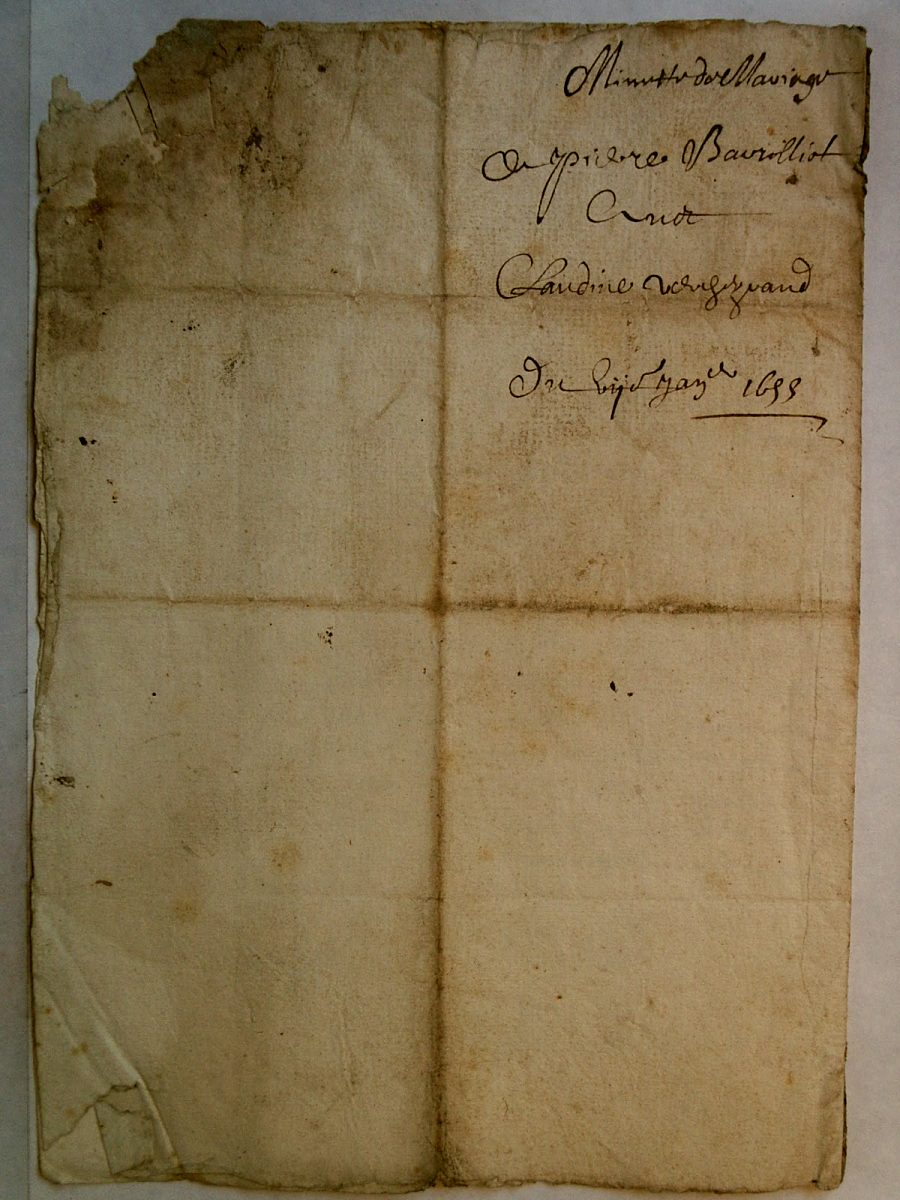 Minutte de Mariage
de pierre Bavrilliot
Avec
Claudine vergezrand
Du vije Janer 1655